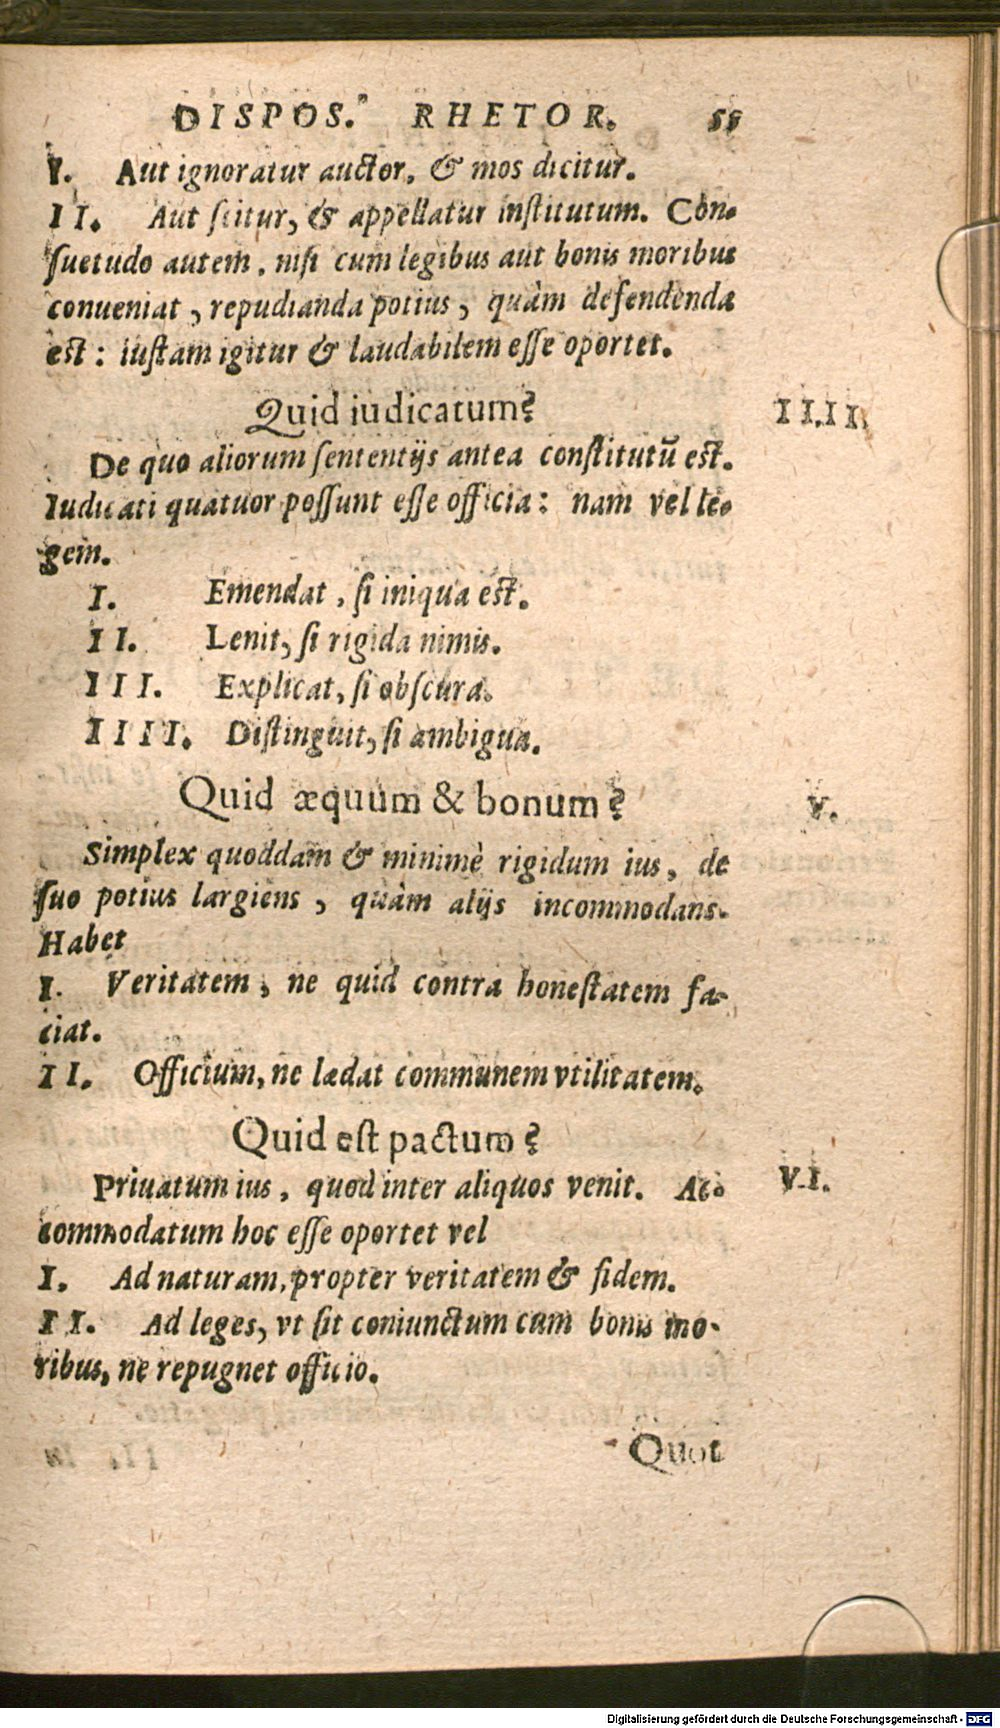 DISPOS. RHETOR. 55
I. Aut ignoratur auctor, & mos dicitur.
II. Aut scitur, & appellatur institutum. Con-
suetudo autem, nisi cum legibus aut bonis moribus
conueniat, repudianda potius, quàm defendenda
est: iustam igitur & laudabilem esse oportet.
Quid iudicatum? IIII.
De quo aliorum sententijs antea constitutũ est.
Iudicati quatuor possunt esse officia: nam vel le-
gem.
I. Emendat, si iniqua est.
II. Lenit, si rigida nimis.
III. Explicat, si obscura.
IIII. Distinguit, si ambigua.
Quid æquum & bonum? V.
Simplex quoddam & minimè rigidum ius, de
suo potius largiens, quàm alijs incommodans.
Habet
I. Veritatem, ne quid contra honestatem fa-
ciat.
II. Officium, ne lædat communem vtilitatem.
Quid est pactum? VI.
Priuatum ius, quod inter aliquos venit. Ac-
commodatum hoc esse oportet vel
I. Ad naturam, propter veritatem & fidem.
II. Ad leges, vt sit coniunctum cum bonis mo-
ribus, ne repugnet officio.
Quot
Digitalisierung gefördert durch die Deutsche Forschungsgemeinschaft - DFG